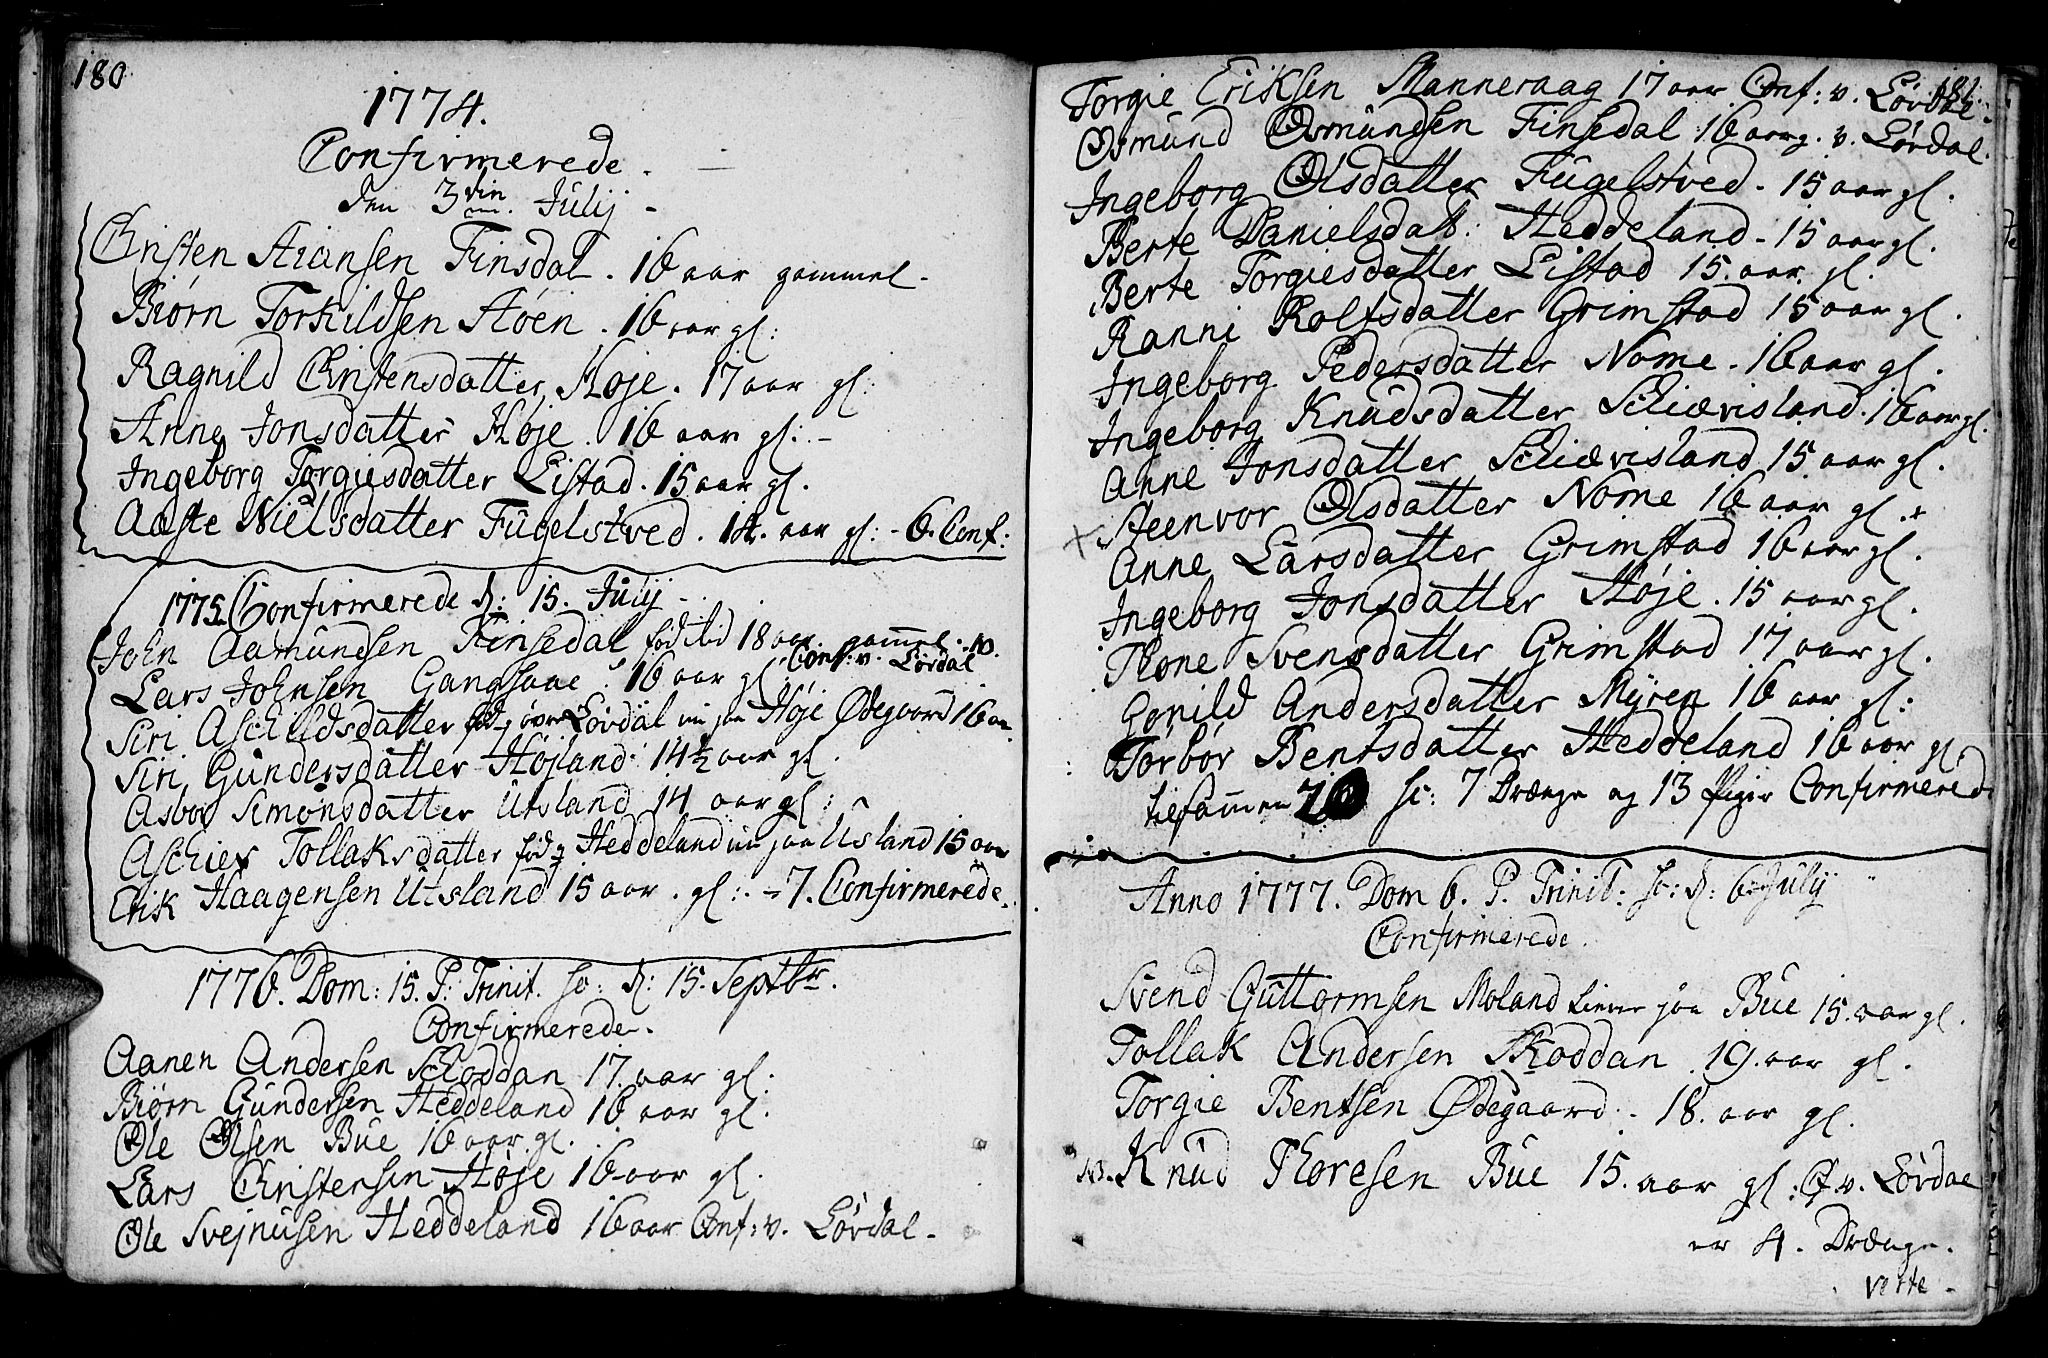 180
1774.
Confirmerede.
den 3die Julij
Christen Aiansen Finsdal. 16 aar gammel
Biørn Torkildsen Høen. 16 aar gl:
Ragnild Christensdatter Høje. 17 aar gl:
Anne Jonsdatter Høje. 16 aar gl:
Ingeborg Torgiesdatter Listad. 15 aar gl.
Aaste Nielsdatter Fügelstved. 14. aar gl: - 6. Conf:
1775. Confirmerede d: 15. Julij
John Aamündsen Finsedal 18 aar gam̄el.
Lars Johnsen Gangsaae 16 aar gl. Conf: v. Lördal
Siri Aschildsdatter Lördal nu paa Høje Ødegaard 16 aar
Siri Gündersdatter Højland 14½ aar gl.
Asbor Simonsdatter Utsland 14 aar gl:
Aschier Tollaksdatter fød Heddeland nu paa Usland 15 aar
Erik Haagensen Utsland 15 aar. gl: - 7. Confirmerede.
1776. Dom: 15. P. Trinit. so: d: 15. Septbr.
Confirmerede.
Aanen Andersen Schoddan 17 aar gl:
Biørn Gündersen Heddeland 16 aar gl.
Ole Olsen Bue 16 aar gl.
Lars Christensen Høje 16 aar gl.
Ole Svejnusen Heddeland 16 aar Conf: v. Lördal
181.
Torgie Eriksen Manneraag 17 aar Conf: v. Lördal
Osmünd Osmündsen Finsedal 16 aar g. v. Lördal.
Ingeborg Olsdatter Fügelstved. 15 aar gl.
Berte Danielsdatt: Heddeland. 15 aar gl.
Berte Torgiesdatter Listad 15. aar. gl.
Ranni Rolfsdatter Grimstad 15 aar gl.
Ingeborg Pedersdatter Nome. 16 aar gl.
Ingeborg Knüdsdatter Schiævisland. 16 aar gl.
Anne Jonsdatter Schiævisland 15 aar gl.
Steenvor Olsdatter Nome 16 aar gl.
Anne Larsdatter Grimstad 16 aar gl.
Ingeborg Jonsdatter Høje. 15 aar gl.
Thone Svensdatter Grimstad 17 aar gl.
Gonild Andersdatter Myren 16 aar gl:
Torbor Bentsdatter Heddeland 16 aar gl.
tilsam̄en 20 sc: 7 Drænge og 13 Piger Confirmered
Anno 1777. Dom 6. P. Trinit: so: d: 6 Julij
Confirmerede.
Svend Güttormsen Moland tiener paa Bue 15. aar gl.
Tollak Andersen Skoddan. 19. aar gl.
Torgie Bentsen Ødegaard. - 18. aar gl.
NB. Knüd Thoresen Bue 15. aar gl: C. v. Lördal
er 4. Drænge.
verte